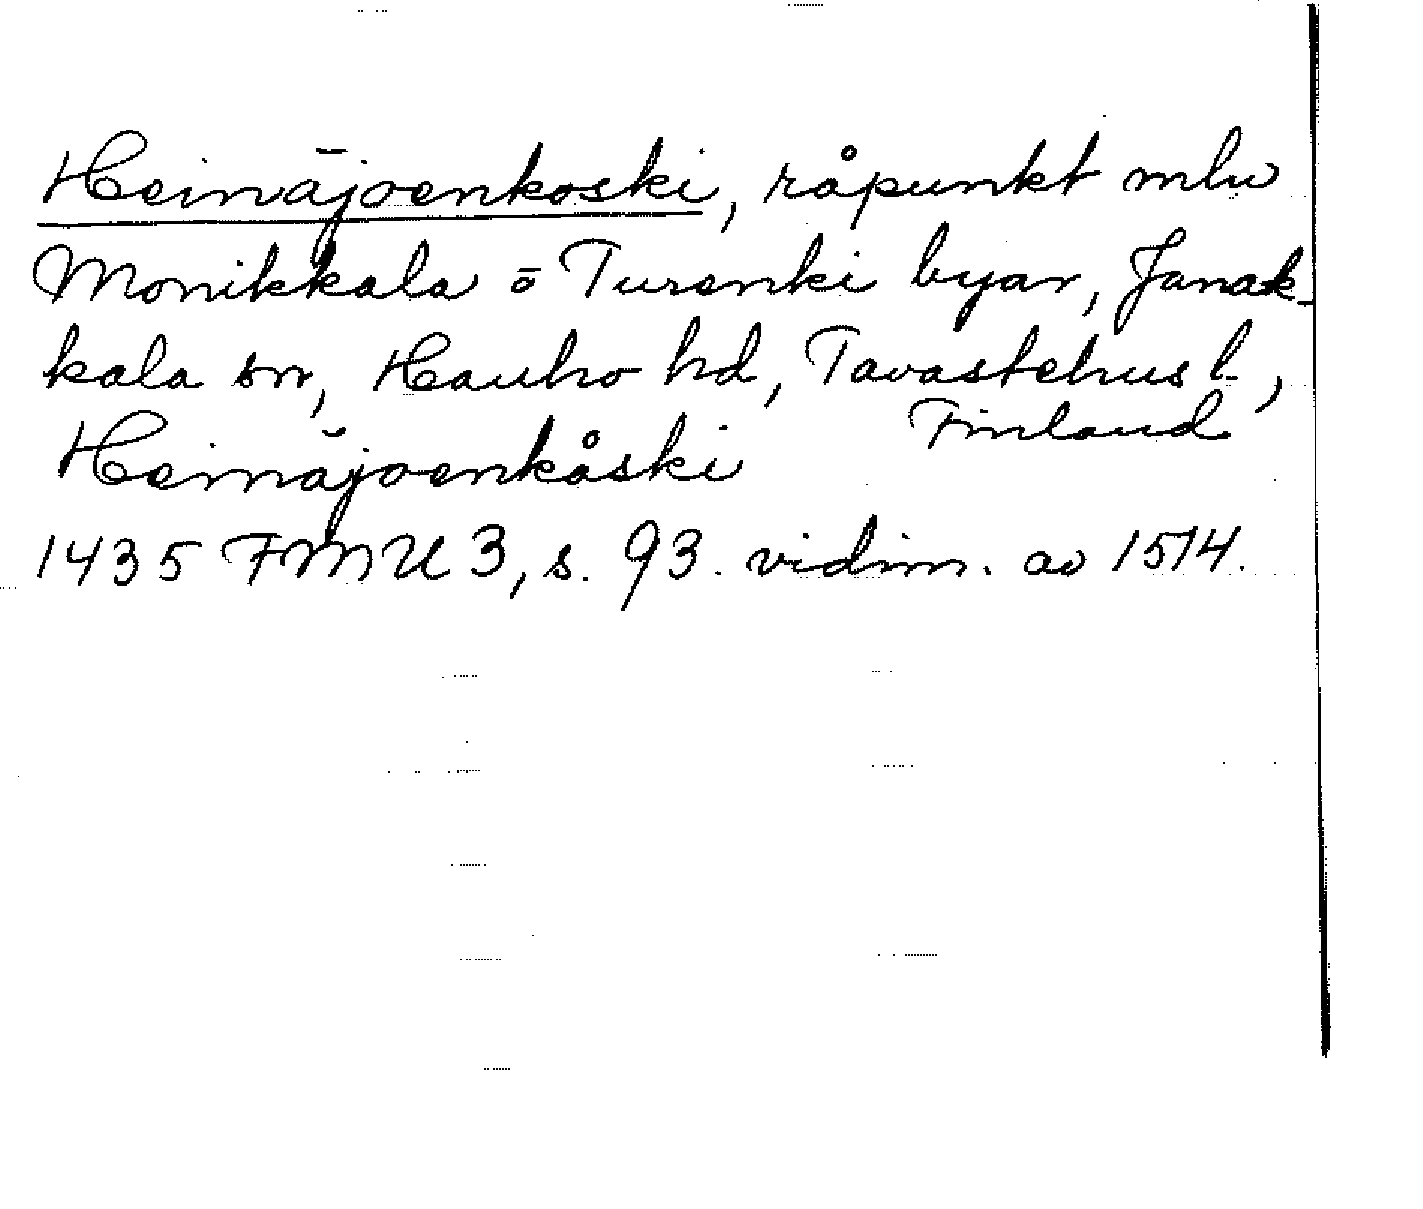 Heinäjoenkoski, råpunkt mlw
Monikkala ō Turenki byar, Janak-
kala sn, Hauho hd, Tavastehus l.,
Finland
Heinäjoenkåski
1435 FMU 3, s. 93. vidim. av 1514.